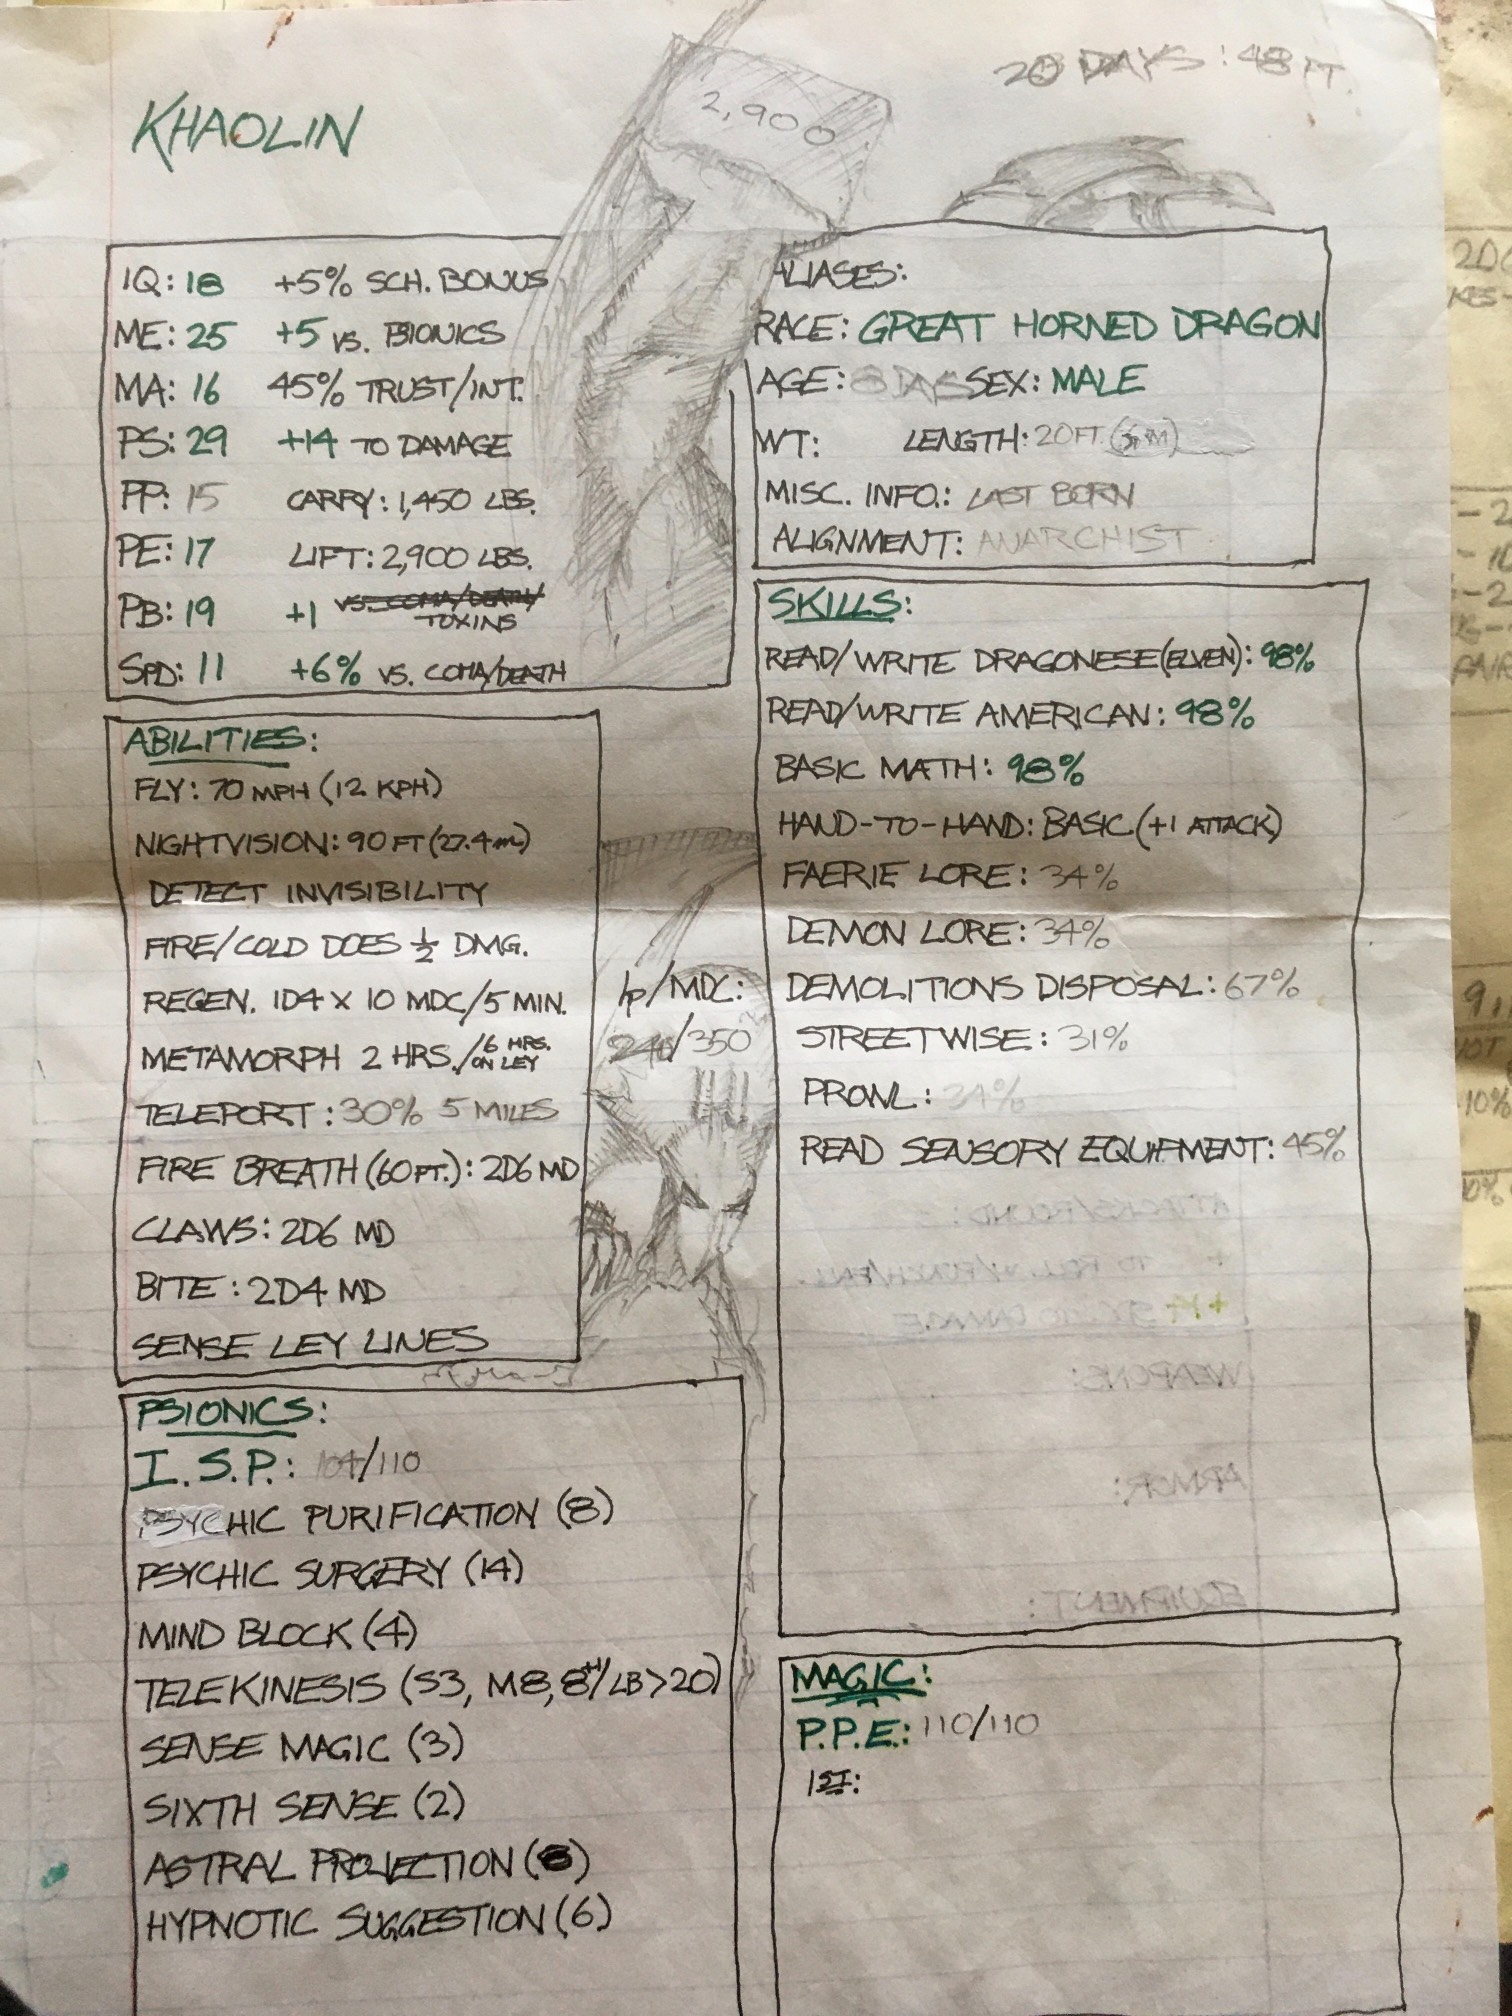 20 DAYS: 48 FT.
2,900
KHAOLIN
IQ: 18 +5% SCH. BONUS
ME: 25 +5 VS. BIONICS
MA: 16 45% TRUST/INT.
PS: 29 +14 TO DAMAGE
PP: 15 CARRY: 1,450 LBS.
PE: 17 LIFT: 2,900 LBS.
PB: 19 +1 VS. COMA/DEATH/
TOXINS
SPD: 11 +6% VS. COMA/DEATH
ALIASES:
RACE: GREAT HORNED DRAGON
AGE: 8 DAYS SEX: MALE
WT: LENGTH: 20 FT. (6M)
MISC. INFO.: LAST BORN
ALIGNMENT: ANARCHIST
ABILITIES:
FLY: 70 MPH (12 KPH)
NIGHTVISION: 90 FT (27.4m)
DETECT INVISIBILITY
FIRE/COLD DOES ½ DMG.
REGEN. 1D4 X 10 MDC/5 MIN.
METAMORPH 2 HRS./6 HRS.
ON LEY
TELEPORT: 30% 5 MILES
FIRE BREATH (60FT.): 2D6 MD
CLAWS: 2D6 MD
BITE: 2D4 MD
SENSE LEY LINES
/MDC:
/350
SKILLS:
READ/WRITE DRAGONESE (ELVEN): 98%
READ/WRITE AMERICAN: 98%
BASIC MATH: 98%
HAND-TO-HAND: BASIC (+1 ATTACK)
FAERIE LORE: 34%
DEMON LORE: 34%
DEMOLITIONS DISPOSAL: 67%
STREETWISE: 31%
PROWL:
READ SENSORY EQUIPMENT: 45%
PSIONICS:
I.S.P.: 104/110
PSYCHIC PURIFICATION (8)
PSYCHIC SURGERY (14)
MIND BLOCK (4)
TELEKINESIS (S3, M8, 8+1/LB>20)
SENSE MAGIC (3)
SIXTH SENSE (2)
ASTRAL PROJECTION (8)
HYPNOTIC SUGGESTION (6)
MAGIC:
P.P.E.: 110/110
1ST: